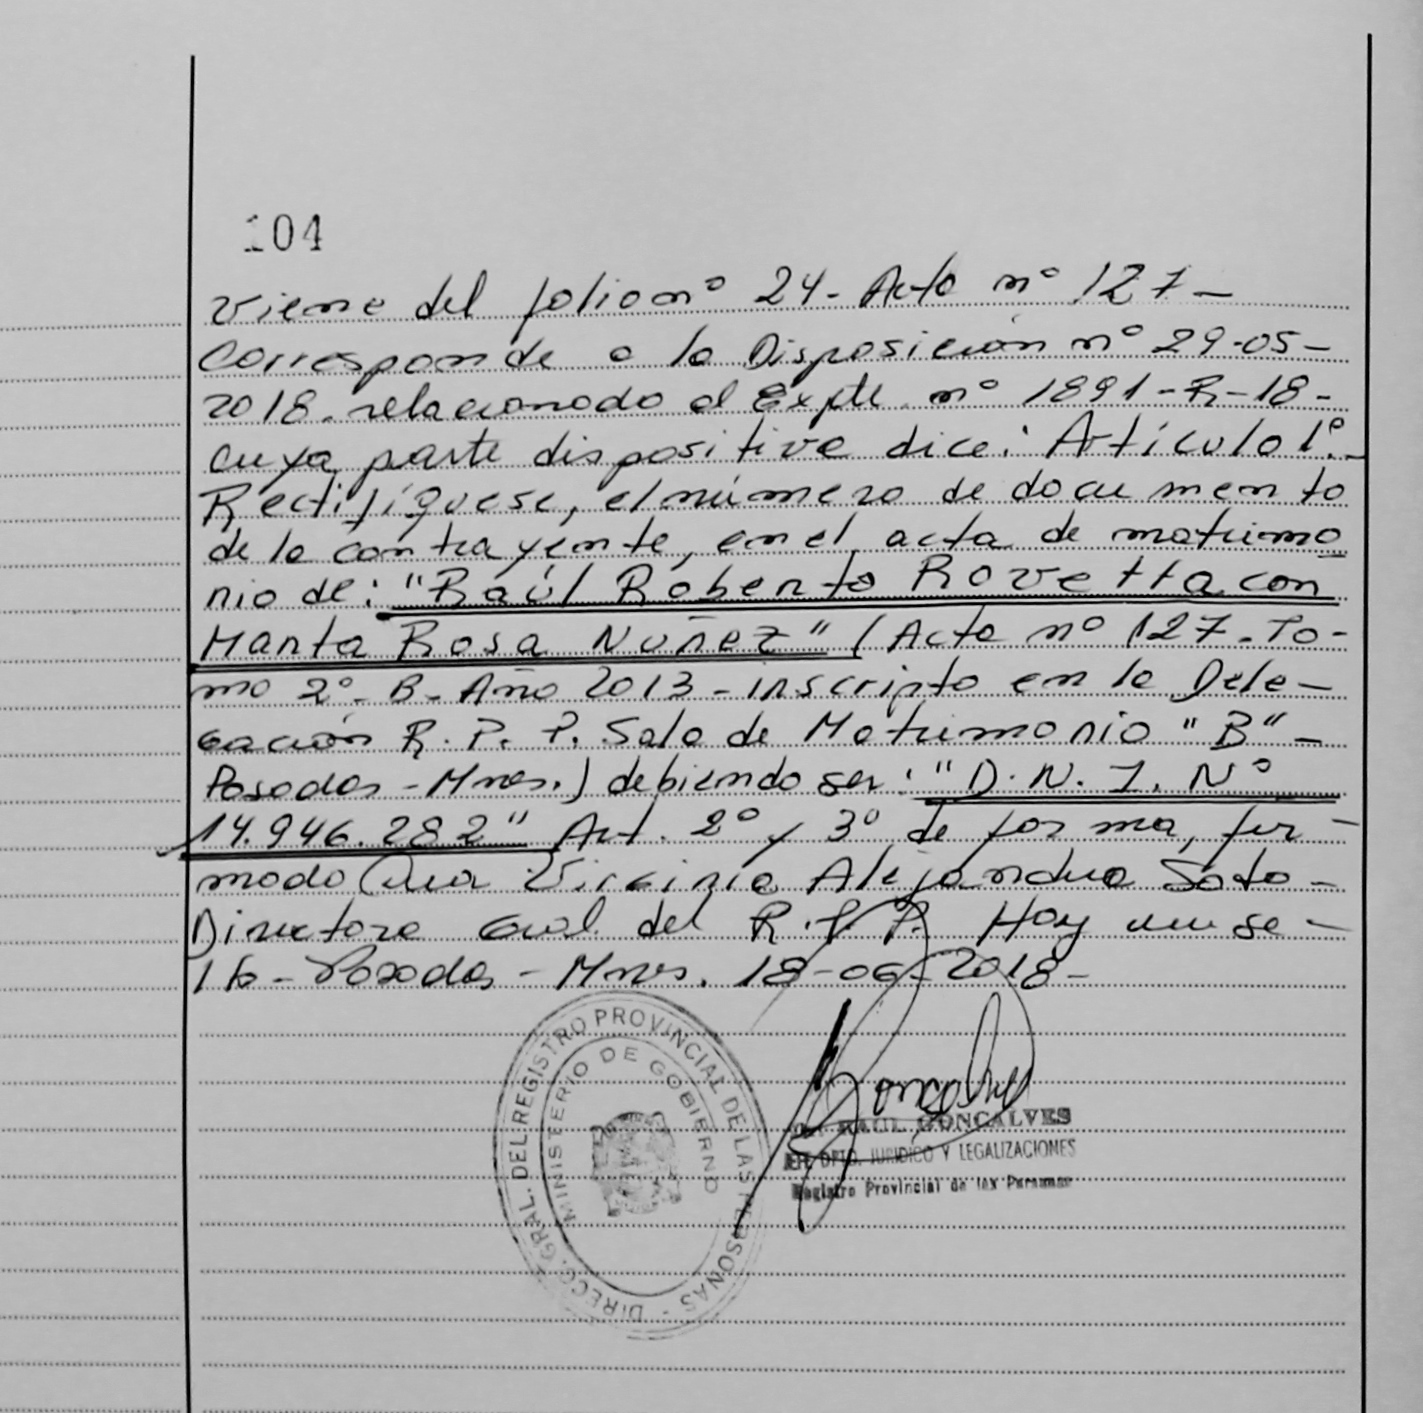 104
Viene del folio nº 24- Acta nº 127-
Corresponde a la Disposición nº 29-05-
2018. relacionado al Expte. nº 1891-R-18-
cuya parte dispositiva dice: Artículo 1º.-
Rectifíquese, el número de documento
de la contrayente, en el acta de matrimo
nio de: "Raúl Roberto Rovetta con
Marta Rosa Nuñez" (Acta nº 127-To-
mo 2º-B-Año 2013-inscripto en la Dele-
gación R.P.P. Sala de Matrimonio "B"-
Posadas-Mnes.) debiendo ser: "D.N.I. Nº
14.946.282" Art. 2º y 3º de forma, fir-
mado Virginia Alejandra Soto-
Directora Gral. del R.P.P. Hoy
Posadas - Mnes. 18-06-2018-
DIRECC. GRAL. DEL REGISTRO PROVINCIAL DE LAS PERSONAS -
MINISTERIO DE GOBIERNO
RAUL GONCALVES
DPTO. JURIDICO Y LEGALIZACIONES
Registro Provincial de las Personas